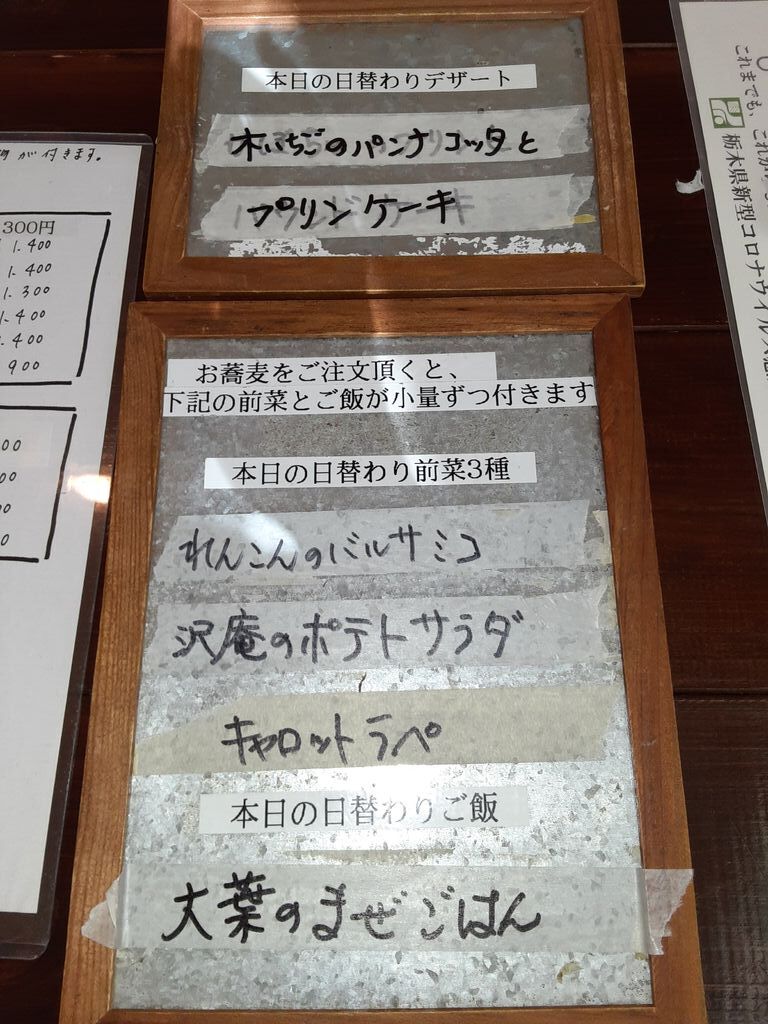 本日の日替わりデザート
木いちごのパンナコッタと
プリンケーキ
お蕎麦をご注文頂くと、
下記の前菜とご飯が小量ずつ付きます
本日の日替わり前菜3種
れんこんのバルサミコ
沢庵のポテトサラダ
キャロットラペ
本日の日替わりご飯
大葉のまぜごはん
が付きます。
300円
1.400
1.400
1.300
1.400
1.400
900
00
00
0
0
これまでも、これから
栃木県新型コロナウイルス感